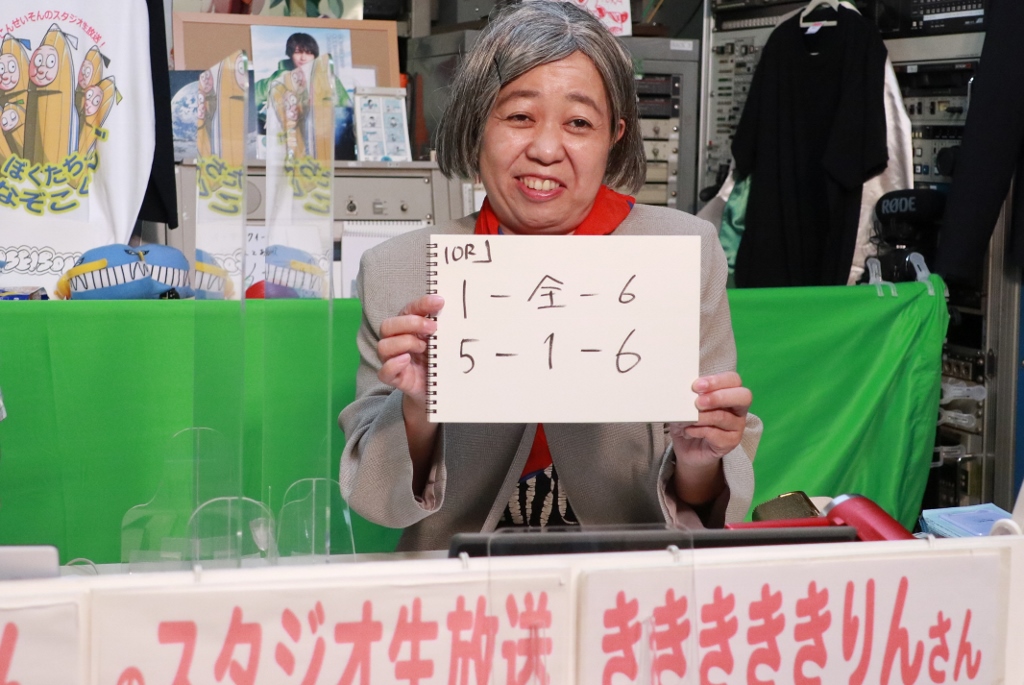 んせいそんのスタジオを放送!
ぼくたちい
なぞこ
RØDE
10R」
1-全-6
5-1-6
のスタジオ生放送
きききききりんさん